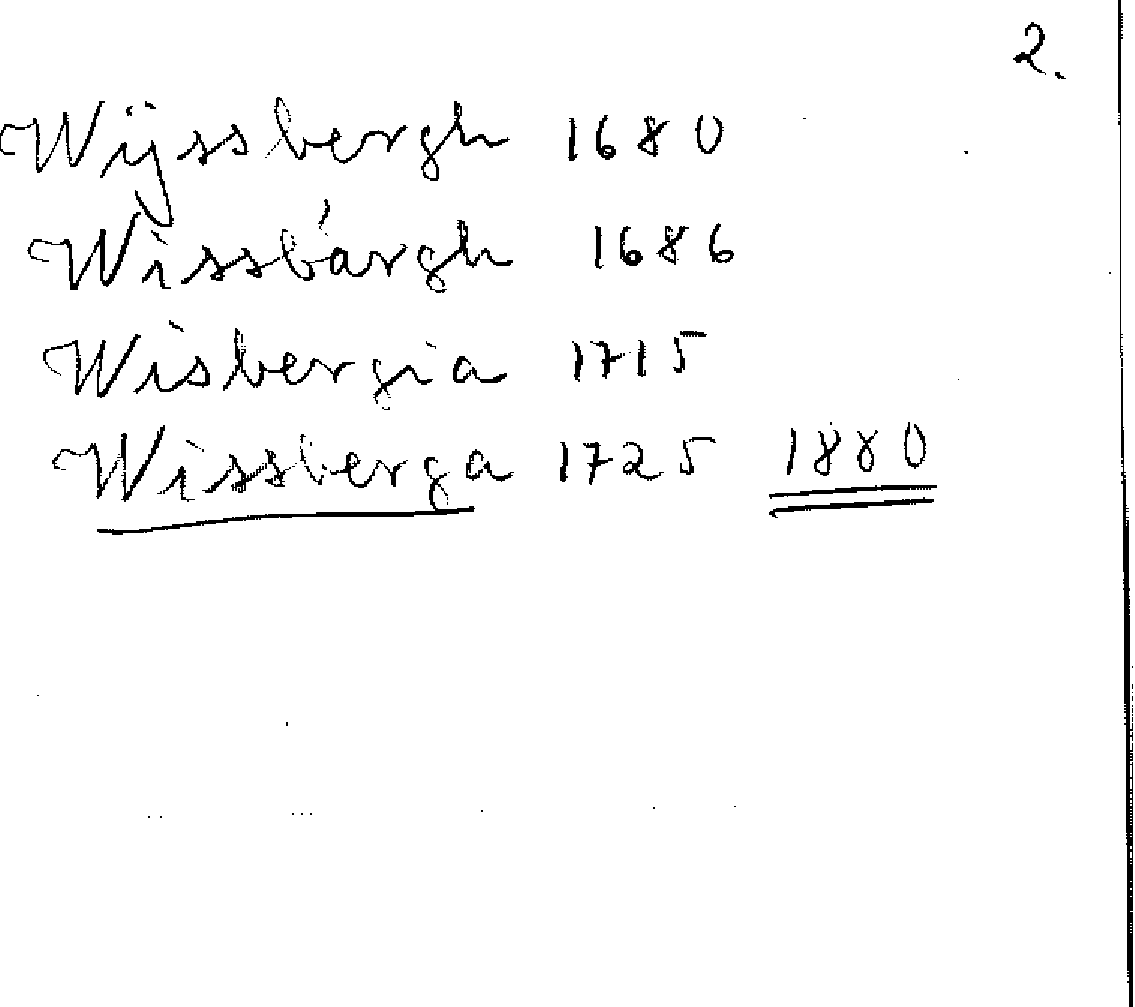 2.
Wÿssbergh 1680
Wissbårgh 1686
Wisbergia 1715
Wissberga 1725 1880